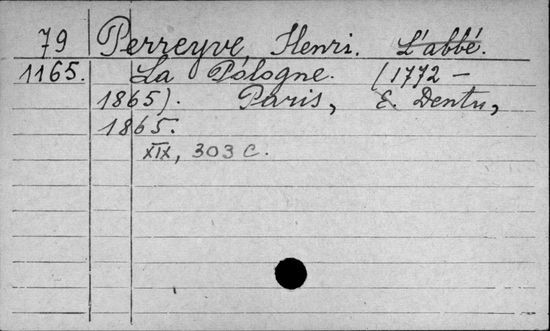 79 Perreyve Henri. L'abbé.
1165. La Pologne. (1772 –
1865). Paris, E. Dentu,
1865.
XIX, 303 c.